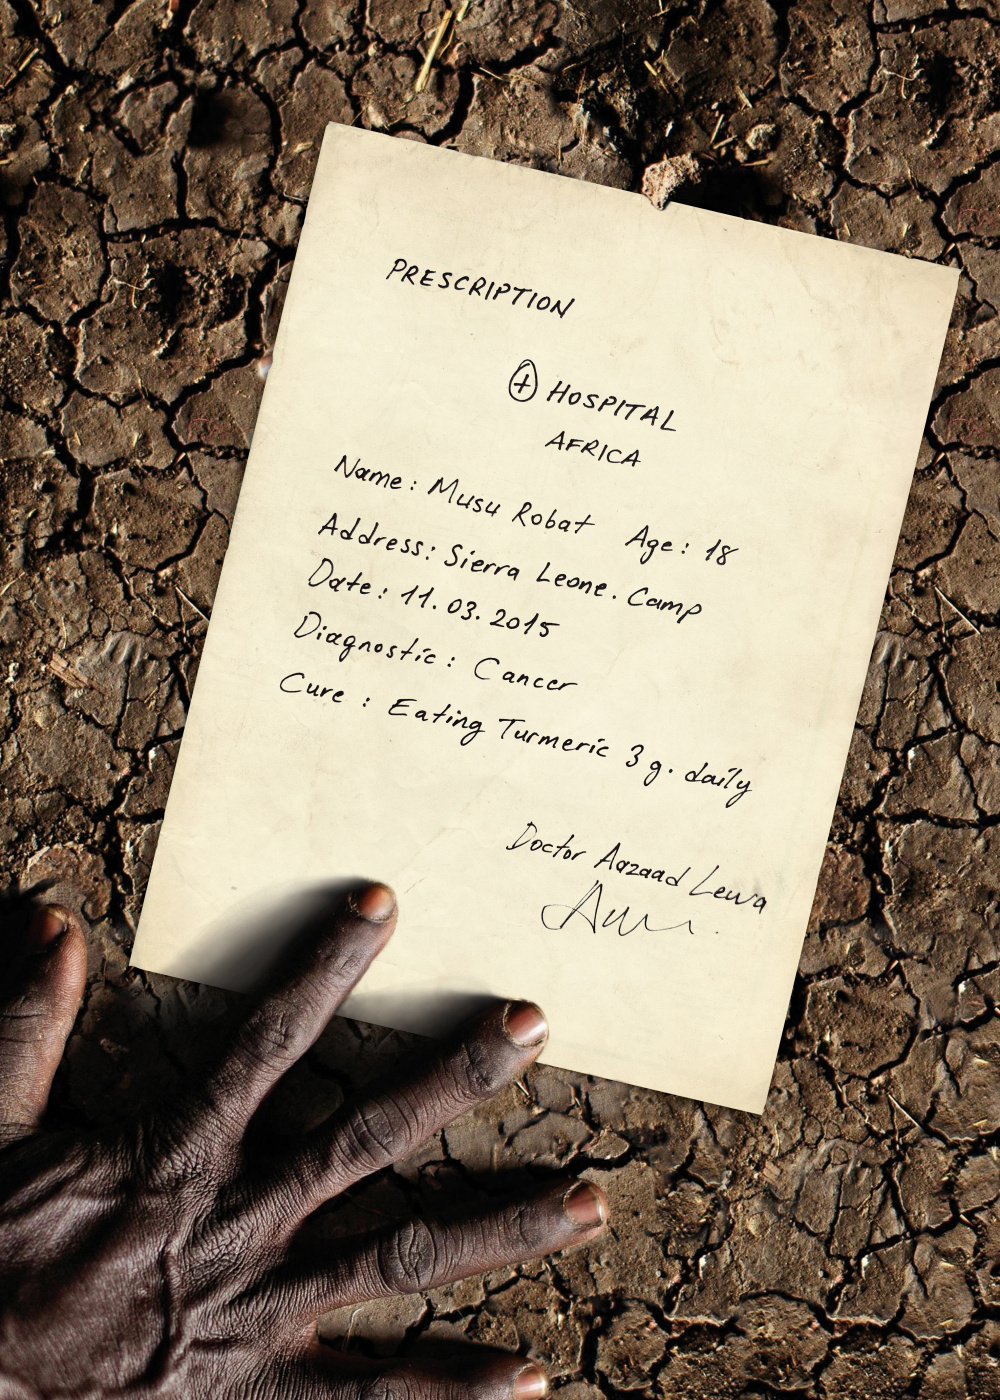 PRESCRIPTION
+ HOSPITAL
AFRICA
Name: Musu Robat Age: 18
Address: Sierra Leone. Camp
Date: 11.03.2015
Diagnostic: Cancer
Cure : Eating Turmeric 3 g. daily
Doctor Aazaad Lewa